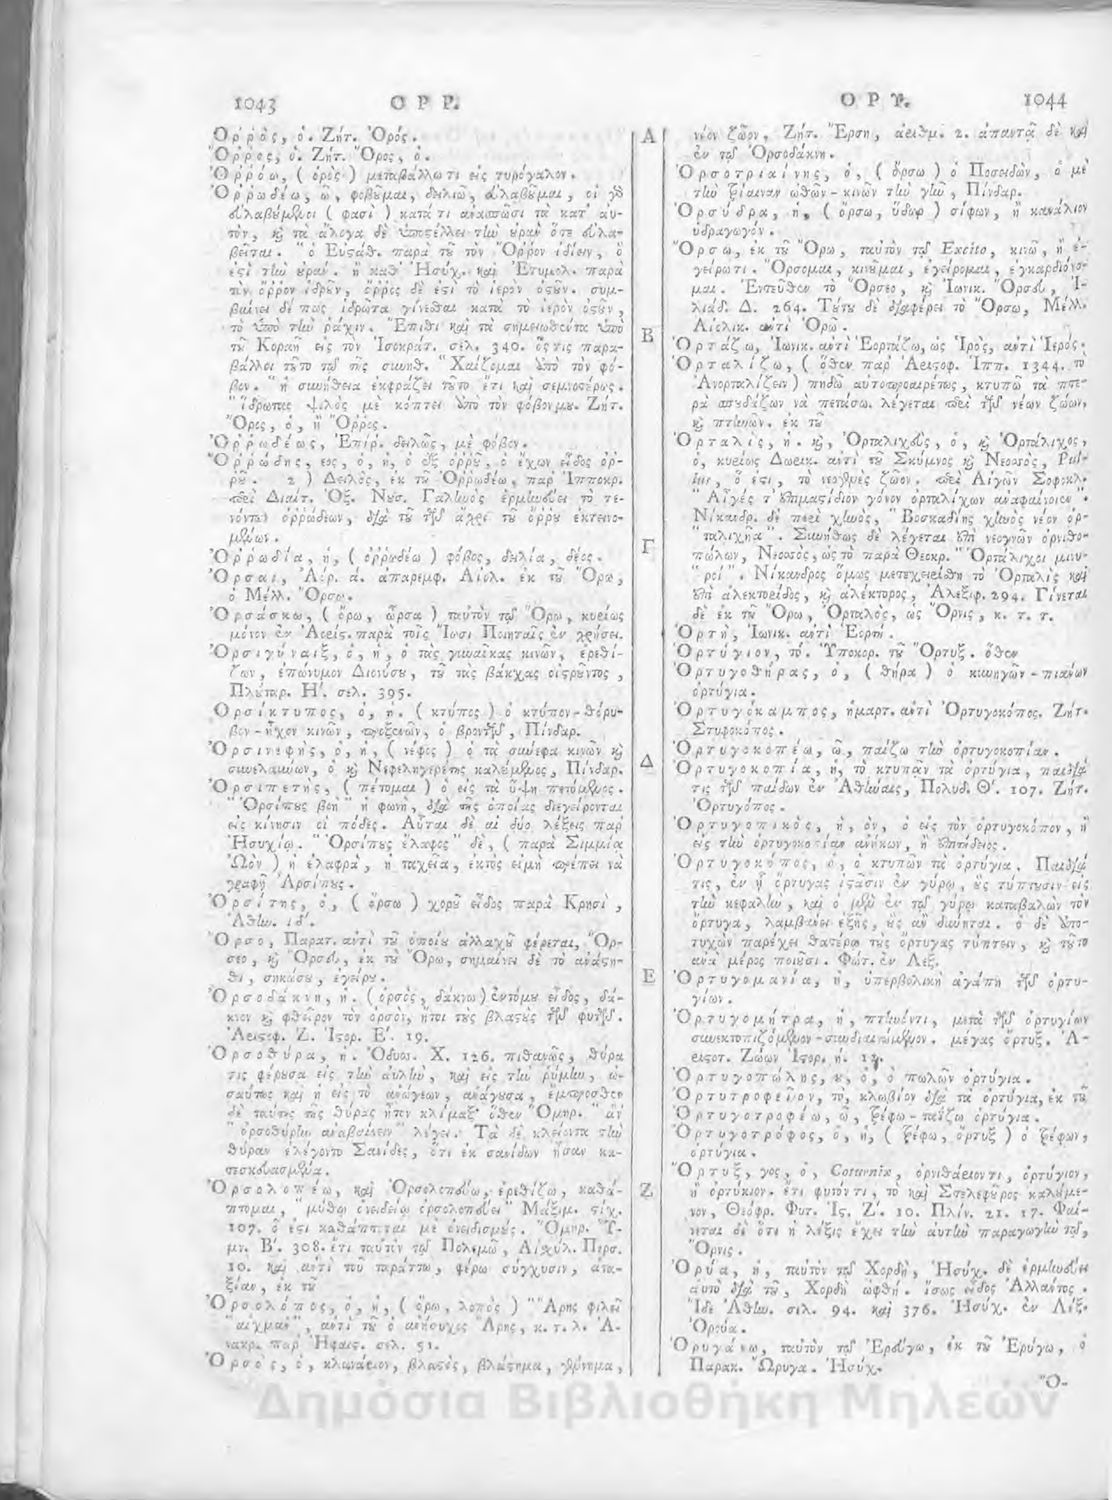 1043 Ο Ρ Ρ.
Ὀρρὸς, ὁ. Ζήτ. Ὀρός.
Ὄρρος, ὁ. Ζήτ. Ὄρος, ὁ.
Ὀρρόω, ( ὀρὸς ) μεταβάλλω τι εἰς τυρόγαλον.
Ὀρρωδέω, ῶ, φοβοῦμαι, δειλιῶ, εὐλαβοῦμαι, οἱ γὸ
εὐλαβούμϑροι ( φασὶ ) κατά τι
τὸν, κỳ τὰ ἄλογα δὲ ὑποστέλλει τὴν οὐρὰν ὅτε εὐλα-
βεῖται. " ὁ Εὐσάθ. παρὰ τοῦ τὸν Ὄρρον ἰδίειν, ὅ
ἐστὶ τὴν οὐράν. ἢ καθ' Ἡσύχ. καὶ Ἐτυμολ. παρὰ
τὸν ὄρρον ἱδροῦν, ὄρρος δὲ ἐστὶ τὸ ἱερὸν ὀστοῦν. συμ-
βαίνει δέ πως ἱδρῶτα γίνεσθαι κατὰ τὸ ἱερὸν ὀστοῦν,
τὸ ὑπὸ τὴν ῥάχιν. Ἔπιθι καὶ τὰ σημειωθέντα ὑπὸ
τοῦ Κοραῆ εἰς τὸν Ἰσοκράτ. σελ. 340. ὅστις παρα-
βάλλει τοῦτο τῷ τῆς συνηθ. " Χαίζομαι ὑπὸ τὸν φό-
βον. " ἡ συνήθεια ἐκφράζει τοῦτο ἔτι καὶ σεμνοτέρως.
" ἵδρωτας ψιλὸς μὲ κόπτει ὑπὸ τὸν φόβον μου. Ζήτ.
Ὄρος, ὁ, ἢ Ὄρρος.
Ὀρρωδέως, Ἐπίρ. δειλῶς, μὲ φόβον.
Ὀρρώδης, εος, ὁ, ἡ, ὁ ἐξ ὄρρου, ὁ ἔχων εἶδος ὄρ-
ρου. 2 ) Δειλὸς, ἐκ τοῦ Ὀρρωδέω, παρ' Ἱπποκρ.
περὶ Διαίτ. Ὀξ. Νοσ. Γαλλινὸς ἑρμηνεύει τὸ τε-
νόντων ὀρρώδεων, διὰ τοῦ τῶν ἄχρι τοῦ ὄρρου ἐκτεινο-
μένων.
Ὀρρωδία, ἡ, ( ὀρρωδέω ) φόβος, δειλία, δέος.
Ὄρσαι, Ἀόρ. ά. ἀπαρεμφ. Αἰολ. ἐκ τοῦ Ὄρω,
ὁ Μέλλ. Ὄρσω.
Ὀρσάσκω, ( ὄρω, ὦρσα ) ταὐτὸν τῷ Ὄρω, κυρίως
μόνον ἐν Ἀορίς. παρὰ τοῖς Ἴωσι Ποιηταῖς ἐν χρήσει.
Ὀρσιγύναιξ, ὁ, ἡ, ὁ τὰς γυναῖκας κινῶν, ἐρεθί-
ζων, ἐπώνυμον Διονύσου, τοῦ τὰς βάκχας οἰστροῦντος,
Πλούταρ. Η'. σελ. 395.
Ὀρσίκτυπος, ὁ, ἡ. ( κτύπος ) ὁ κτύπον-θόρυ-
βον-ἦχον κινῶν, προξενῶν, ὁ βροντῶν, Πίνδαρ.
Ὀρσινεφὴς, ὁ, ἡ, ( νέφος ) ὁ τὰ σύννεφα κινῶν κỳ
συνελαύνων, ὁ κỳ Νεφεληγερέτης καλούμενος, Πίνδαρ.
Ὀρσιπετὴς, ( πέτομαι ) ὁ εἰς τὰ ὕψη πετόμενος.
" Ὀρσίπους βοὴ " ἡ φωνὴ, διὰ τῆς ὁποίας διεγείρονται
εἰς κίνησιν οἱ πόδες. Αὗται δὲ αἱ δύο λέξεις παρ'
Ἡσυχίῳ. " Ὀρσίπους ἔλαφος " δὲ, ( παρὰ Σιμμίᾳ
Ὠὸν ) ἡ ἐλαφρὰ, ἡ ταχεῖα, ἐκτὸς εἰμὴ πρέπει νὰ
γραφῇ Ἀρσίπους.
Ὀρσίτης, ὁ, ( ὄρσω ) χοροῦ εἶδος παρὰ Κρησὶ,
Ἀθήν. ιδ'.
Ὄρσο, Παρατ. ἀντὶ τοῦ ὁποίου ἀλλαχοῦ φέρεται, Ὄρ-
σεο, κỳ Ὄρσευ, ἐκ τοῦ Ὄρω, σημαίνει δὲ τὸ ἀνάστη-
θι, σηκώσου, ἐγείρου.
Ὀρσοδάκνη, ἡ. ( ὀρσὸς, δάκνω ) ἐντόμου εἶδος, δά-
κνον κỳ φθεῖρον τὸν ὀρσὸν, ἤτοι τοὺς βλαστοὺς τῶν φυτῶν.
Ἀριστφ. Ζ. Ἱστορ. Ε'. 19.
Ὀρσοθύρα, ἡ. Ὀδυσσ. Χ. 126. πιθανῶς, θύρα
τις φέρουσα εἰς τὴν αὐλὴν, καὶ εἰς τὴν ῥύμην, ὡ-
σαύτως καὶ ἡ εἰς τὸ ἀνώγεων, ἀνάγουσα, ἔμπροσθεν
δὲ ταύτης τῆς θύρας ἦτον κλίμαξ· ὅθεν Ὅμηρ. " ἀν'
" ὀρσοθύρην ἀναβαίνειν " λέγει. Τὰ δὲ κλείοντα τὴν
θύραν ἐλέγοντο Σανίδες, ὅτι ἐκ σανίδων ἦσαν κα-
τεσκευασμέναι.
Ὀρσολοπέω, καὶ Ὀρσολοπεύω, ἐρεθίζω, καθά-
πτομαι, " μύθῳ ὀνειδείῳ ὀρσολοπεύει " Μάξιμ. στίχ.
107. ὅ ἐστι καθάπτεται μὲ ὀνειδισμούς. Ὅμηρ. Ὕ-
μν. Β'. 308. ἔτι ταὐτὸν τῷ Πολεμῶ, Αἰσχύλ. Περσ.
10. καὶ ἀντὶ τοῦ ταράττω, φέρω σύγχυσιν, ἀτα-
ξίαν, ἐκ τοῦ
Ὀρσολόπος, ὁ, ἡ, ( ὄρω, λοπὸς ) " Ἄρης φιλεῖ
" αἰχμὰν ", ἀντὶ τοῦ ὁ ἀνήσυχος Ἄρης, κ. τ. λ. Ἀ-
νακρ. παρ' Ἡφαις. σελ. 51.
Ὀρσὸς, ὁ, κλωνάριον, βλαστὸς, βλάστημα, γέννημα,
Α
Β
Γ
Δ
Ε
Ζ
Ο Ρ Υ. 1044
νέον ζῶον. Ζήτ. Ἔρση, ἀριθμ. 2. ἀπαντᾷ δὲ καὶ
ἐν τῷ Ὀρσοδάκνη.
Ὀρσοτριαίνης, ὁ, ( ὄρσω ) ὁ Ποσειδῶν, ὁ μὲ
τὴν τρίαιναν ὠθῶν-κινῶν τὴν γῆν, Πίνδαρ.
Ὀρσύδρα, ἡ, ( ὄρσω, ὕδωρ ) σίφων, ἢ κανάλιον
ὑδραγωγόν.
Ὄρσω, ἐκ τοῦ Ὄρω, ταὐτὸν τῷ Excito, κινῶ, ἢ ἐ-
γείρω τι. Ὄρσομαι, κινοῦμαι, ἐγείρομαι, ἐγκαρδιόνο-
μαι. Ἐντεῦθεν τὸ Ὄρσεο, κỳ Ἰωνικ. Ὄρσευ, Ἰ-
λιάδ. Δ. 264. Τούτου δὲ διαφέρει τὸ Ὄρσω, Μέλλ.
Αἰολικ. ἀντὶ Ὀρῶ.
Ὀρτάζω, Ἰωνικ. ἀντὶ Ἑορτάζω, ὡς Ἱρὸς, ἀντὶ Ἱερός.
Ὀρταλίζω, ( ὅθεν παρ' Ἀριστοφ. Ἱππ. 1344. τὸ
Ἀνορταλίζειν ) πηδῶ αὐτοπροαιρέτως, κτυπῶ τὰ πτε-
ρὰ σπουδάζων νὰ πετάσω. λέγεται περὶ τῶν νέων ζώων,
κỳ πτηνῶν. ἐκ τοῦ
Ὀρταλὶς, ἡ. κỳ, Ὀρταλιχεὺς, ὁ, κỳ Ὀρτάλιχος,
ὁ, κυρίως Δωρικ. ἀντὶ τοῦ Σκύμνος κỳ Νεοσσὸς, Pul-
lus, ὅ ἐστι, τὸ νεογνὸν ζῶον. περὶ Αἰγῶν Σοφοκλ.
" Αἶγές τ' ἐπιμαστίδιον γόνον ὀρταλίχων ἀναφαίνοιεν ".
Νίκανδρ. δὲ περὶ χηνὸς, " Βοσκαδίης χηνὸς νέον ὀρ-
" ταλιχῆα ". Συνήθως δὲ λέγεται ἐπὶ νεογνῶν ὀρνιθο-
πώλων, Νεοσσὸς, ὡς τὸ παρὰ Θεοκρ. " Ὀρτάλιχοι μινυ-
" ροί ". Νίκανδρος ὅμως μετεχειρίσθη τὸ Ὀρταλὶς καὶ
ἐπὶ ἀλεκτορίδος, κỳ ἀλέκτορος, Ἀλεξιφ. 294. Γίνεται
δὲ ἐκ τοῦ Ὄρω, Ὀρταλὸς, ὡς Ὄρνις, κ. τ. τ.
Ὀρτὴ, Ἰωνικ. ἀντὶ Ἑορτή.
Ὀρτύγιον, τό. Ὑποκορ. τοῦ Ὄρτυξ. ὅθεν
Ὀρτυγοθήρας, ὁ, ( θήρα ) ὁ κυνηγῶν-πιάνων
ὀρτύγια.
Ὀρτυγόκαμπος, ἡμαρτ. ἀντὶ Ὀρτυγοκόπος. Ζήτ.
Στυφοκόπος.
Ὀρτυγοκοπέω, ῶ, παίζω τὴν ὀρτυγοκοπίαν.
Ὀρτυγοκοπία, ἡ, τὸ κτυπᾶν τὰ ὀρτύγια, παιδιά
τις τῶν παίδων ἐν Ἀθήναις, Πολυδ. Θ'. 107. Ζήτ.
Ὀρτυγόπος.
Ὀρτυγοπικὸς, ἡ, ὸν, ὁ εἰς τὸν ὀρτυγοκόπον, ἢ
εἰς τὴν ὀρτυγοκοπίαν ἀνήκων, ἢ ἐπιτήδειος.
Ὀρτυγοκόπος, ὁ, ὁ κτυπῶν τὰ ὀρτύγια. Παιδιά
τις, ἐν ᾗ ὄρτυγας ἱστᾶσιν ἐν γύρῳ, οὓς τύπτουσιν εἰς
τὴν κεφαλὴν, καὶ ὁ μὲν ἐν τῷ γύρῳ καταβαλὼν τὸν
ὄρτυγα, λαμβάνει ἑξῆς, οὓς ἂν δύνηται. ὁ δὲ ἀπο-
τυχὼν παρέχει θατέρῳ τοὺς ὄρτυγας τύπτειν, κỳ τοῦτο
ἀνὰ μέρος ποιοῦσι. Φώτ. ἐν Λεξ.
Ὀρτυγομανία, ἡ, ὑπερβολικὴ ἀγάπη τῶν ὀρτυ-
γίων.
Ὀρτυγομήτρα, ἡ, πτηνόν τι, μετὰ τῶν ὀρτυγίων
συνεκτοπιζόμενον . μέγας ὄρτυξ. Ἀ-
ριστοτ. Ζώων Ἱστορ. ή.
Ὀρτυγοπώλης, ου, ὁ, ὁ πωλῶν ὀρτύγια.
Ὀρτυτροφεῖον, τὸ, κλωβίον διὰ τὰ ὀρτύγια, ἐκ τοῦ
Ὀρτυγοτροφέω, ῶ, τρέφω-παίζω ὀρτύγια.
Ὀρτυγοτρόφος, ὁ, ἡ, ( τρέφω, ὄρτυξ ) ὁ τρέφων,
ὀρτύγια.
Ὄρτυξ, γος, ὁ, Coturnix, ὀρνιθάριόν τι, ὀρτύγιον,
ἢ ὀρτύκιον. ἔτι φυτόν τι, τὸ καὶ Στελεφοῦρος καλούμε-
νον, Θεόφρ. Φυτ. Ἱς. Ζ'. 10. Πλίν. 21. 17. Φαί-
νεται δὲ ὅτι ἡ λέξις ἔχει τὴν αὐτὴν παραγωγὴν τῷ,
Ὄρνις.
Ὀρύα, ἡ, ταὐτὸν τῷ Χορδὴ, Ἡσύχ. δὲ ἑρμηνεύει
αὐτὸ διὰ τοῦ, Χορδὴ ὠφθή. ἴσως εἶδος Ἀλλαντος.
Ἴδε Ἀθήν. σελ. 94. καὶ 376. Ἡσύχ. ἐν Λέξ.
Ὀρούα.
Ὀρυγάνω, ταὐτὸν τῷ Ἐρεύγω, ἐκ τοῦ Ἐρύγω, ὁ
Παρακ. Ὤρυγα. Ἡσύχ.
Ὀ-
Δημόσια Βιβλιοθήκη Μηλεών